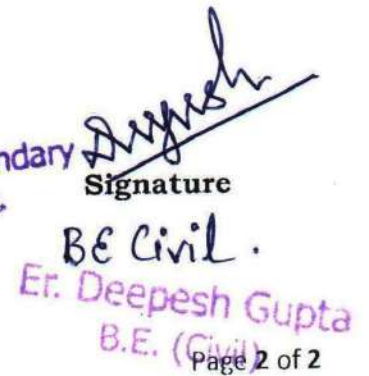 ndary Deepesh
Signature
BE Civil.
Er. Deepesh Gupta
B.E. (Civil)
Page 2 of 2